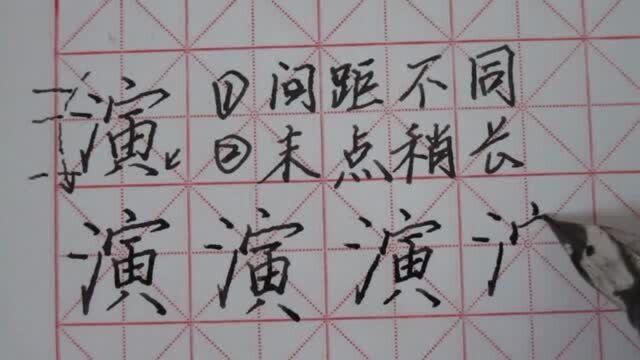 演 ①间距不同
②末点稍长
演 演 演